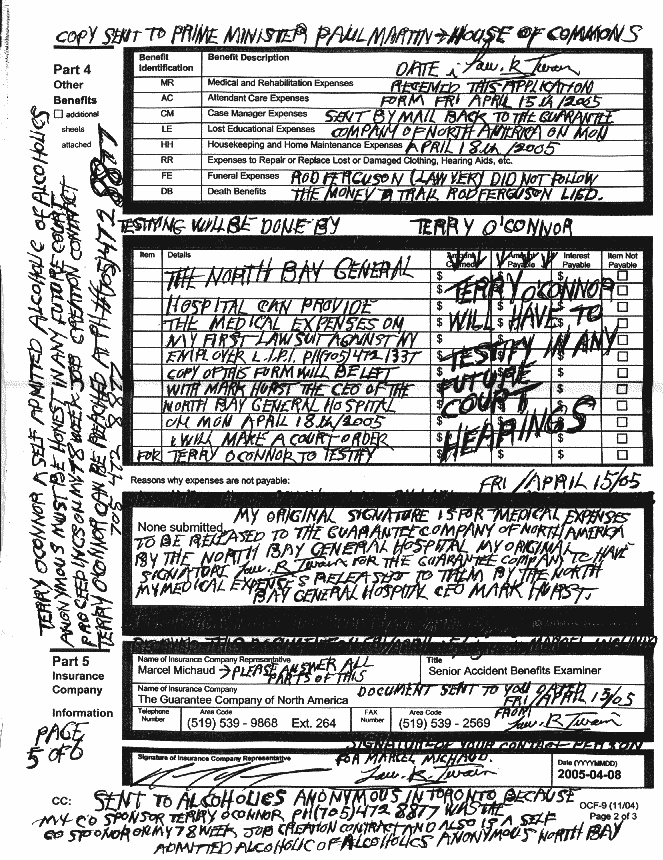 COPY SENT TO PRIME MINISTER PAUL MARTIN → HOUSE OF COMMONS
Part 4
Other
Benefits
additional
sheets
attached
Benefit Identification
Benefit Description
DATE
MR Medical and Rehabilitation Expenses RECEIVED THIS APPLICATION
AC Attendant Care Expenses FORM FRI APRIL 15th/2005
CM Case Manager Expenses SENT BY MAIL BACK TO THE GUARANTEE
LE Lost Educational Expenses COMPANY OF NORTH AMERICA ON MON
HH Housekeeping and Home Maintenance Expenses APRIL 18th/2005
RR Expenses to Repair or Replace Lost or Damaged Clothing, Hearing Aids, etc.
FE Funeral Expenses ROD FERGUSON (LAWYER) DID NOT FOLLOW
DB Death Benefits THE MONEY TRAIL ROD FERGUSON LIED.
TESTING WILL BE DONE BY TERRY O'CONNOR
Item Details Amount Claimed Amount Payable Interest Payable Item Not Payable
THE NORTH BAY GENERAL
HOSPITAL CAN PROVIDE
THE MEDICAL EXPENSES ON
MY FIRST LAWSUIT AGAINST MY
EMPLOYER L.I.P.I. PH(705)472 1337
COPY OF THIS FORM WILL BE LEFT
WITH MARK HURST THE CEO OF THE
NORTH BAY GENERAL HOSPITAL
ON MON APRIL 18th/2005
I WILL MAKE A COURT ORDER
FOR TERRY O'CONNOR TO TESTIFY
TERRY O'CONNOR
WILL HAVE TO
TESTIFY IN ANY
FUTURE
COURT
HEARINGS
Reasons why expenses are not payable:
FRI/APRIL 15/05
None submitted.
MY ORIGINAL SIGNATURE IS FOR MEDICAL EXPENSES
TO BE RELEASED TO THE GUARANTEE COMPANY OF NORTH AMERICA
BY THE NORTH BAY GENERAL HOSPITAL MY ORIGINAL
SIGNATURE FOR THE GUARANTEE COMPANY TO HAVE
MY MEDICAL EXPENSES RELEASED TO THEM BY THE NORTH
BAY GENERAL HOSPITAL CEO MARK HURST
TERRY O'CONNOR A SELF ADMITTED ALCOHOLIC OF ALCOHOLICS
ANONYMOUS MUST BE HONEST IN ANY FUTURE COURT
PROCEEDINGS ON MY 78 WEEK JOB CREATION CONTRACT
TERRY O'CONNOR CAN BE REACHED AT PH# (705) 472 8877
705 472 8877
Part 5
Insurance
Company
Information
Name of Insurance Company Representative
Marcel Michaud → PLEASE ANSWER ALL
PARTS OF THIS
Title
Senior Accident Benefits Examiner
Name of Insurance Company
The Guarantee Company of North America
DOCUMENT SENT TO YOU DATED
FRI/APRIL 15/05
FROM
Telephone Number
Area Code
(519) 539 - 9868 Ext. 264
FAX Number
Area Code
(519) 539 - 2569
PAGE
5 OF 6
SIGNATURE OF YOUR CONTACT PERSON
Signature of Insurance Company Representative
FOR MARCEL MICHAUD.
Date (YYYYMMDD)
2005-04-08
CC: SENT TO ALCOHOLICS ANONYMOUS IN TORONTO BECAUSE
MY CO SPONSOR TERRY O'CONNOR PH(705)472 8877 WAS THE
CO SPONOR ON MY 78 WEEK JOB CREATION CONTRACT AND ALSO IS A SELF
ADMITTED ALCOHOLIC OF ALCOHOLICS ANONYMOUS NORTH BAY
OCF-9 (11/04)
Page 2 of 3